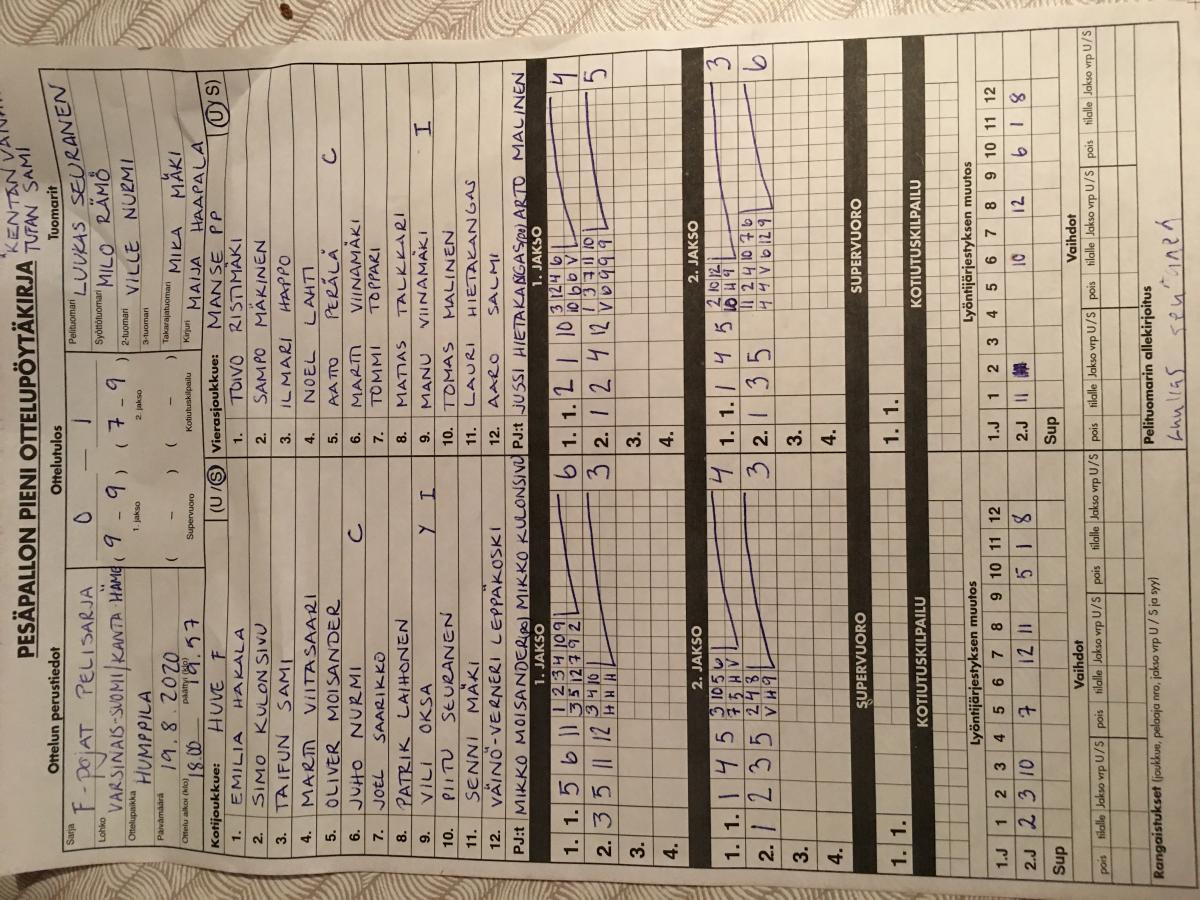 KENTÄN
TUPAN SAMI
PESÄPALLON PIENI OTTELUPÖYTÄKIRJA
Ottelun perustiedot Ottelutulos Tuomarit
Sarja F-POJAT PELISARJA
Lohko VARSINAIS-SUOMI/KANTA-HÄME
Ottelupaikka HUMPPILA
Päivämäärä 19.8.2020
Ottelu alkoi (klo) 18.00 päättyi (klo) 19.57
0 – 1
( 9 – 9 ) ( 7 – 9 )
1. jakso 2. jakso
( – ) ( – )
Supervuoro Kotiutuskilpailu
Pelituomari LUUKAS SEURANEN
Syöttötuomari MILO RÄMÖ
2-tuomari VILLE NURMI
3-tuomari
Takarajatuomari MIKA MÄKI
Kirjuri MAIJA HAAPALA
Kotijoukkue: HUVE F (U/S)
1. EMILIA HAKALA
2. SIMO KULONSIVU
3. TAIFUN SAMI
4. MARTI VIITASAARI
5. OLIVER MOISANDER
6. JUHO NURMI C
7. JOEL SAARIKKO
8. PATRIK LAIHONEN
9. VILI OKSA Y I
10. PIITU SEURANEN
11. SENNI MÄKI
12. VÄINÖ-VERNERI LEPPÄKOSKI
PJ:t MIKKO MOISANDER(po) MIKKO KULONSIVU
Vierasjoukkue: MANSE PP (U/S)
1. TOIVO RISTIMÄKI
2. SAMPO MÄKINEN
3. ILMARI HAPPO
4. NOEL LAHTI
5. AATO PERÄLÄ C
6. MARTTI VIINAMÄKI
7. TOMMI TOPPARI
8. MATIAS TALKKARI
9. MANU VIINAMÄKI I
10. TOMAS MALINEN
11. LAURI HIETAKANGAS
12. AARO SALMI
PJ:t JUSSI HIETAKANGAS(po) ARTO MALINEN
1. JAKSO 1. JAKSO
1. 1. 5 6 11 1 2 3 4 10 9 6
3 5 12 7 9 2
2. 3 5 11 12 3 4 10 3
H H H
3.
4.
1. 1. 2 1 10 3 12 4 6 4
10 6 6 V
2. 1 2 4 12 1 3 7 11 10 5
V 6 9 9 9
3.
4.
2. JAKSO 2. JAKSO
1. 1. 1 4 5 3 10 5 6 4
7 5 H V
2. 1 2 3 5 2 4 8 3
V H 9
3.
4.
1. 1. 1 4 5 2 10 12 3
10 H 9
2. 1 3 5 11 2 4 10 7 6 6
4 4 V 6 12 9
3.
4.
SUPERVUORO SUPERVUORO
1. 1. 1. 1.
KOTIUTUSKILPAILU KOTIUTUSKILPAILU
Lyöntijärjestyksen muutos Lyöntijärjestyksen muutos
1.J 1 2 3 4 5 6 7 8 9 10 11 12
2.J 2 3 10 7 12 11 5 1 8
Sup
1.J 1 2 3 4 5 6 7 8 9 10 11 12
2.J 11 10 12 6 1 8
Sup
Vaihdot Vaihdot
pois tilalle Jakso vrp U/S pois tilalle Jakso vrp U/S pois tilalle Jakso vrp U/S pois tilalle Jakso vrp U/S pois tilalle Jakso vrp U/S pois tilalle Jakso vrp U/S
Rangaistukset (joukkue, pelaaja nro, jakso vrp U/S ja syy)
Pelituomarin allekirjoitus
Luukas seuranen